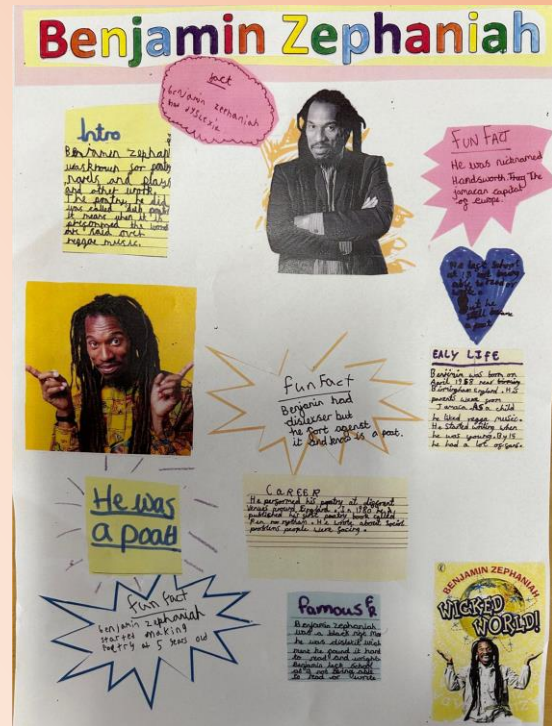 Benjamin Zephaniah
fact
benjamin zephaniah
has dyslexia
Intro
Benjamin Zephaniah
was known for poetry
novels and plays
and other work.
The poetry he did
was called dub poetry
it means when it is
the words
are said over
reggae music.
FUN FACT
He was nicknamed
Handsworth. They The
jamacan capital
of europe.
He left school
at 13 not being
able
he
still became
a poet
EALY LIFE
Benjamin was born on
April 1958 near
Birmingham England. His
parents were from
Jamaca. As a child
he liked reggae music.
He started writing when
he was young. By 15
he had a lot of fans.
fun Fact
Benjamin had
but
he
it and is a poet.
He was
a poat
CAREER
He performed his poetry at different
venues around England. In 1980 he
published his first poetry book called
Pen rhythm. He wrote about social
problems people were facing.
fun Fact
benjamin zephaniah
started making
Poetry at 5 years old
Famous
Benjamin zephaniah
was a black
he was
he found it hard
to read and
Benjamin left school
at not being able
to read or write
BENJAMIN ZEPHANIAH
WICKED
WORLD!